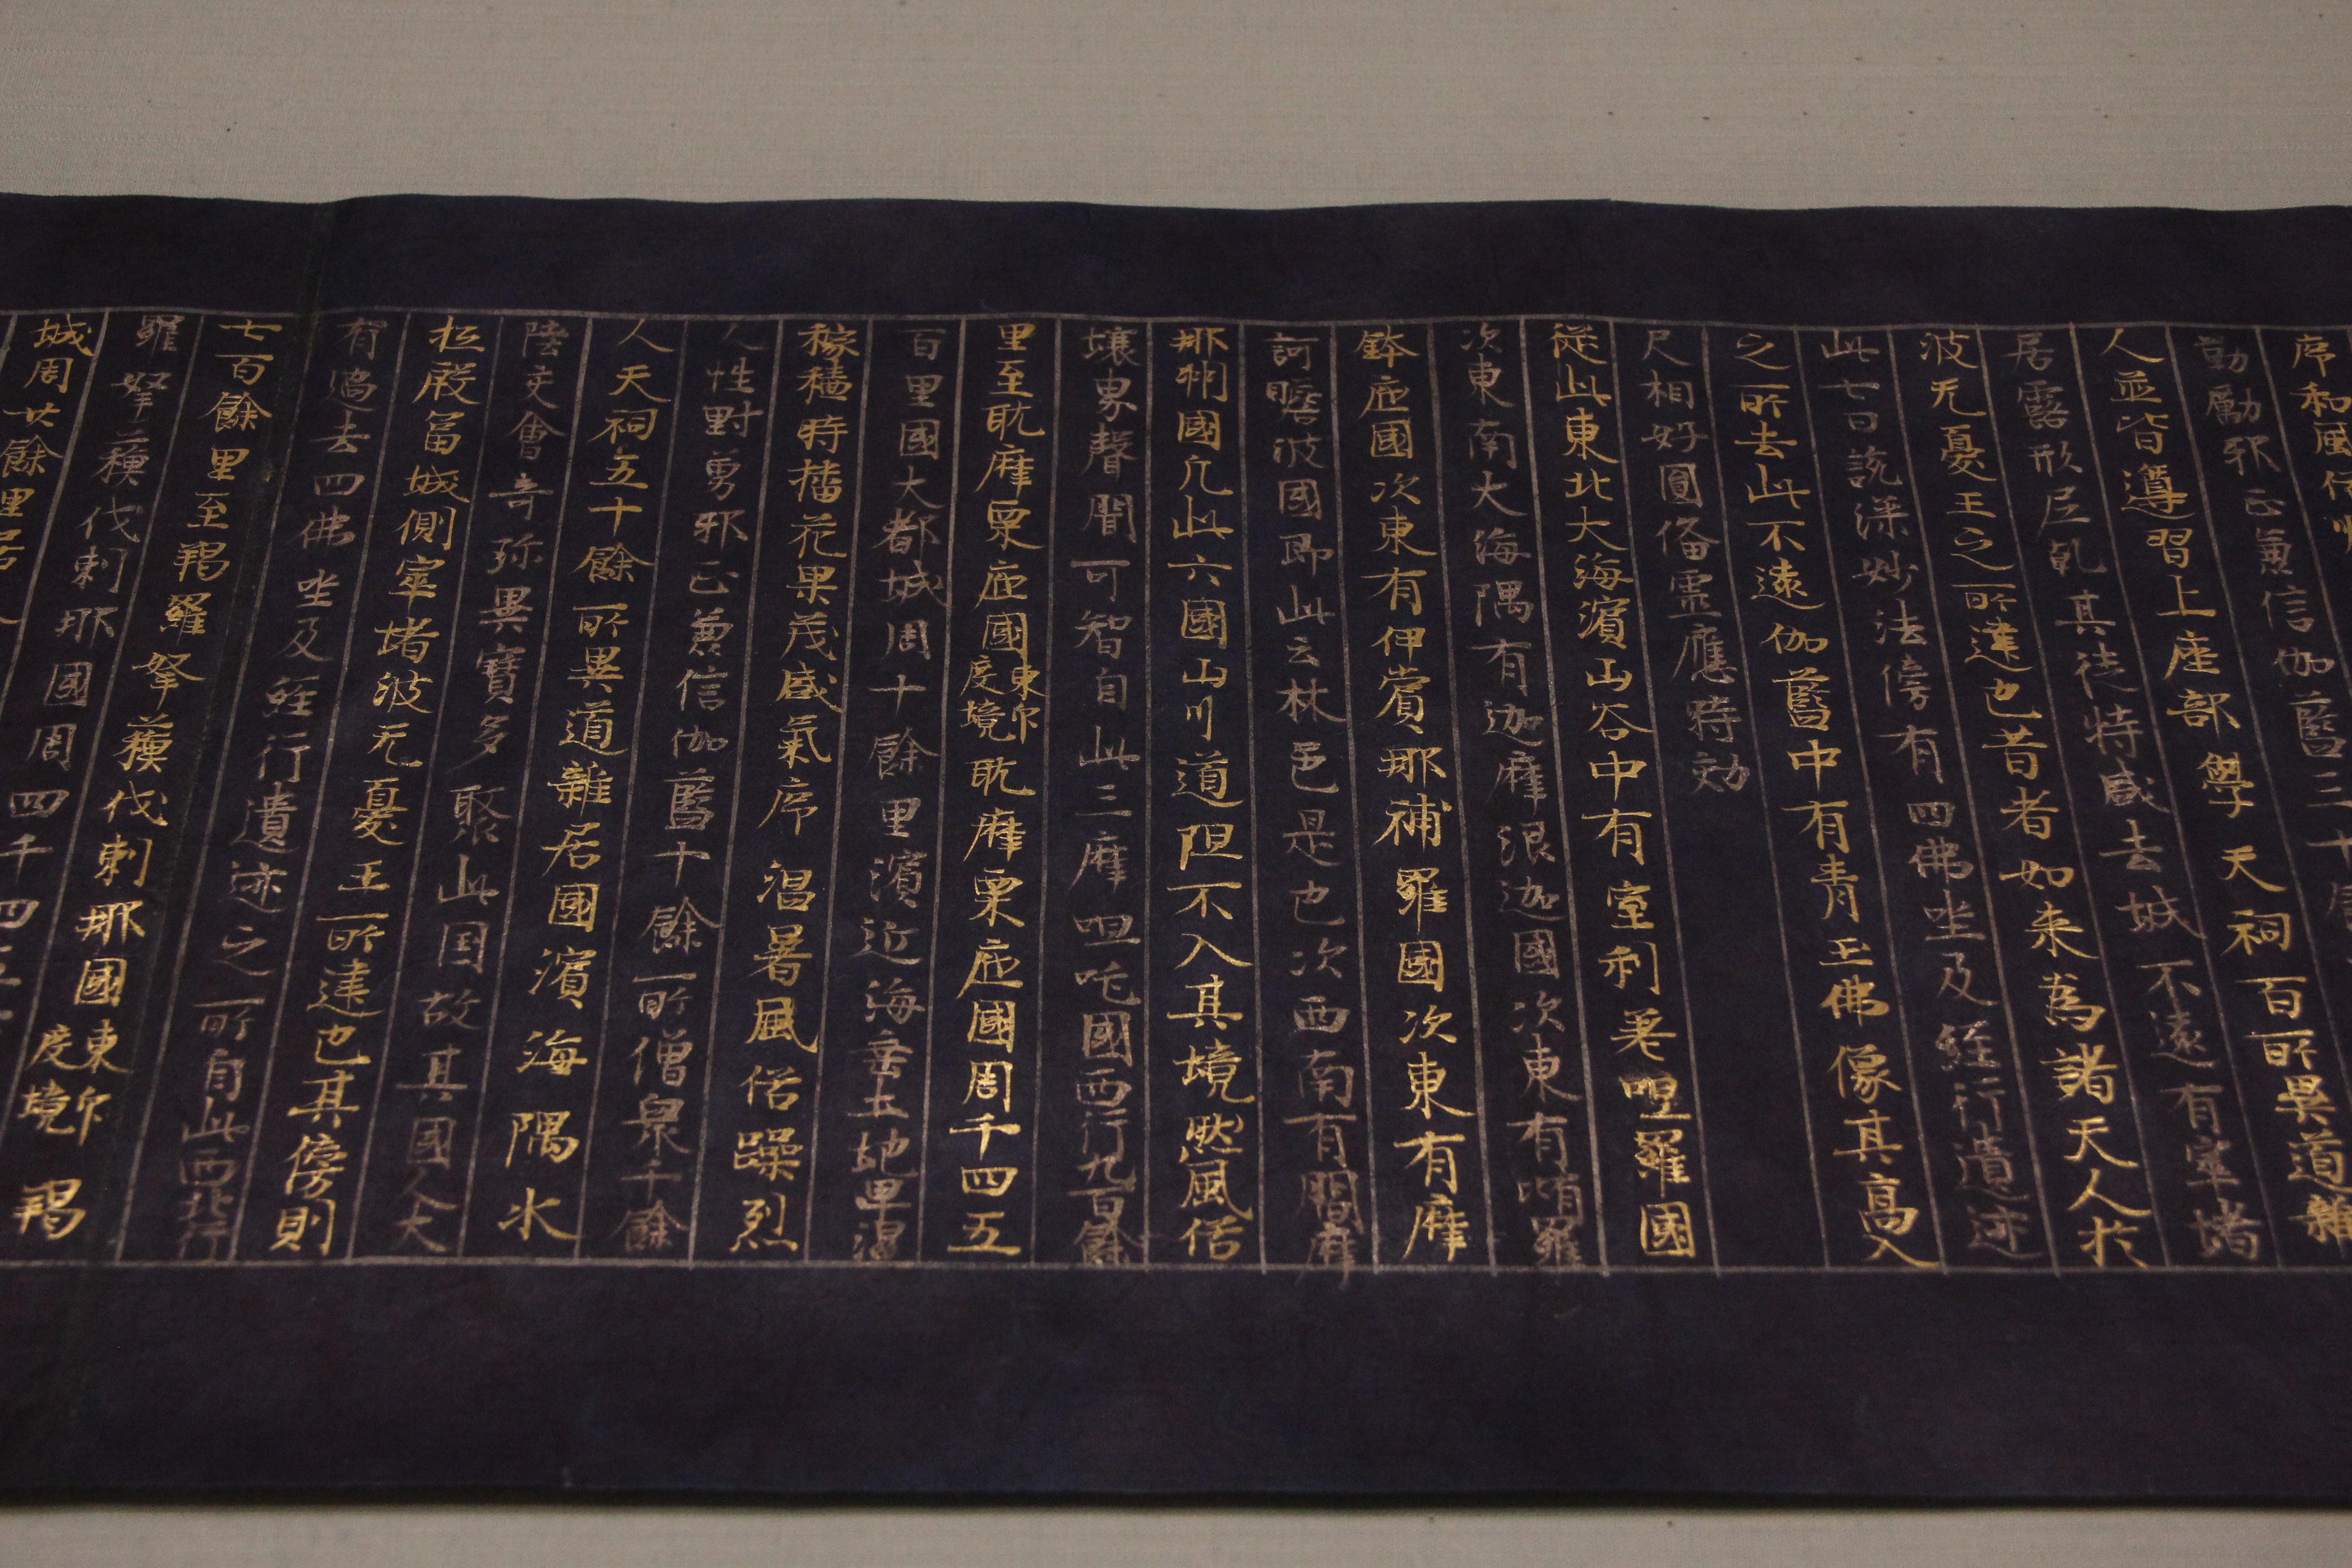 序和風俗
勤勵邪正兼信伽藍三十
人並皆遵習上座部學天祠百所異道雜
居露形尼乹其徒特盛去城不遠有窣堵
波无憂王之所建也昔者如来為諸天人於
此七日說深妙法傍有四佛坐及經行遺迹
之所去此不遠伽藍中有青玉佛像其高八
尺相好圓俻靈應時効
從此東北大海濱山谷中有室利差呾羅國
次東南大海隅有迦摩浪迦國次東有墮羅
鉢底國次東有伊賞那補羅國次東有摩
訶瞻波國即此云林邑是也次西南有閻摩
那洲國凡此六國山川道阻不入其境然風俗
壤界聲聞可智自此三摩呾吒國西行九百餘
里至耽摩栗底國東印度境耽摩栗底國周千四五
百里國大都城周十餘里濱近海垂土地卑濕
稼穡時播花果茂盛氣序温暑風俗躁烈
人性勇邪正兼信伽藍十餘所僧衆千餘
人天祠五十餘所異道雜居國濱海隅水
陸交會奇珎異寶多聚此國故其國人大
抵殷冨城側窣堵波无憂王所建也其傍則
有過去四佛坐及經行遺迹之所自此西北行
七百餘里至羯羅拏蘓伐剌那國東印度境羯
羅拏蘓伐剌那國周四千四五
城周廿餘里居人